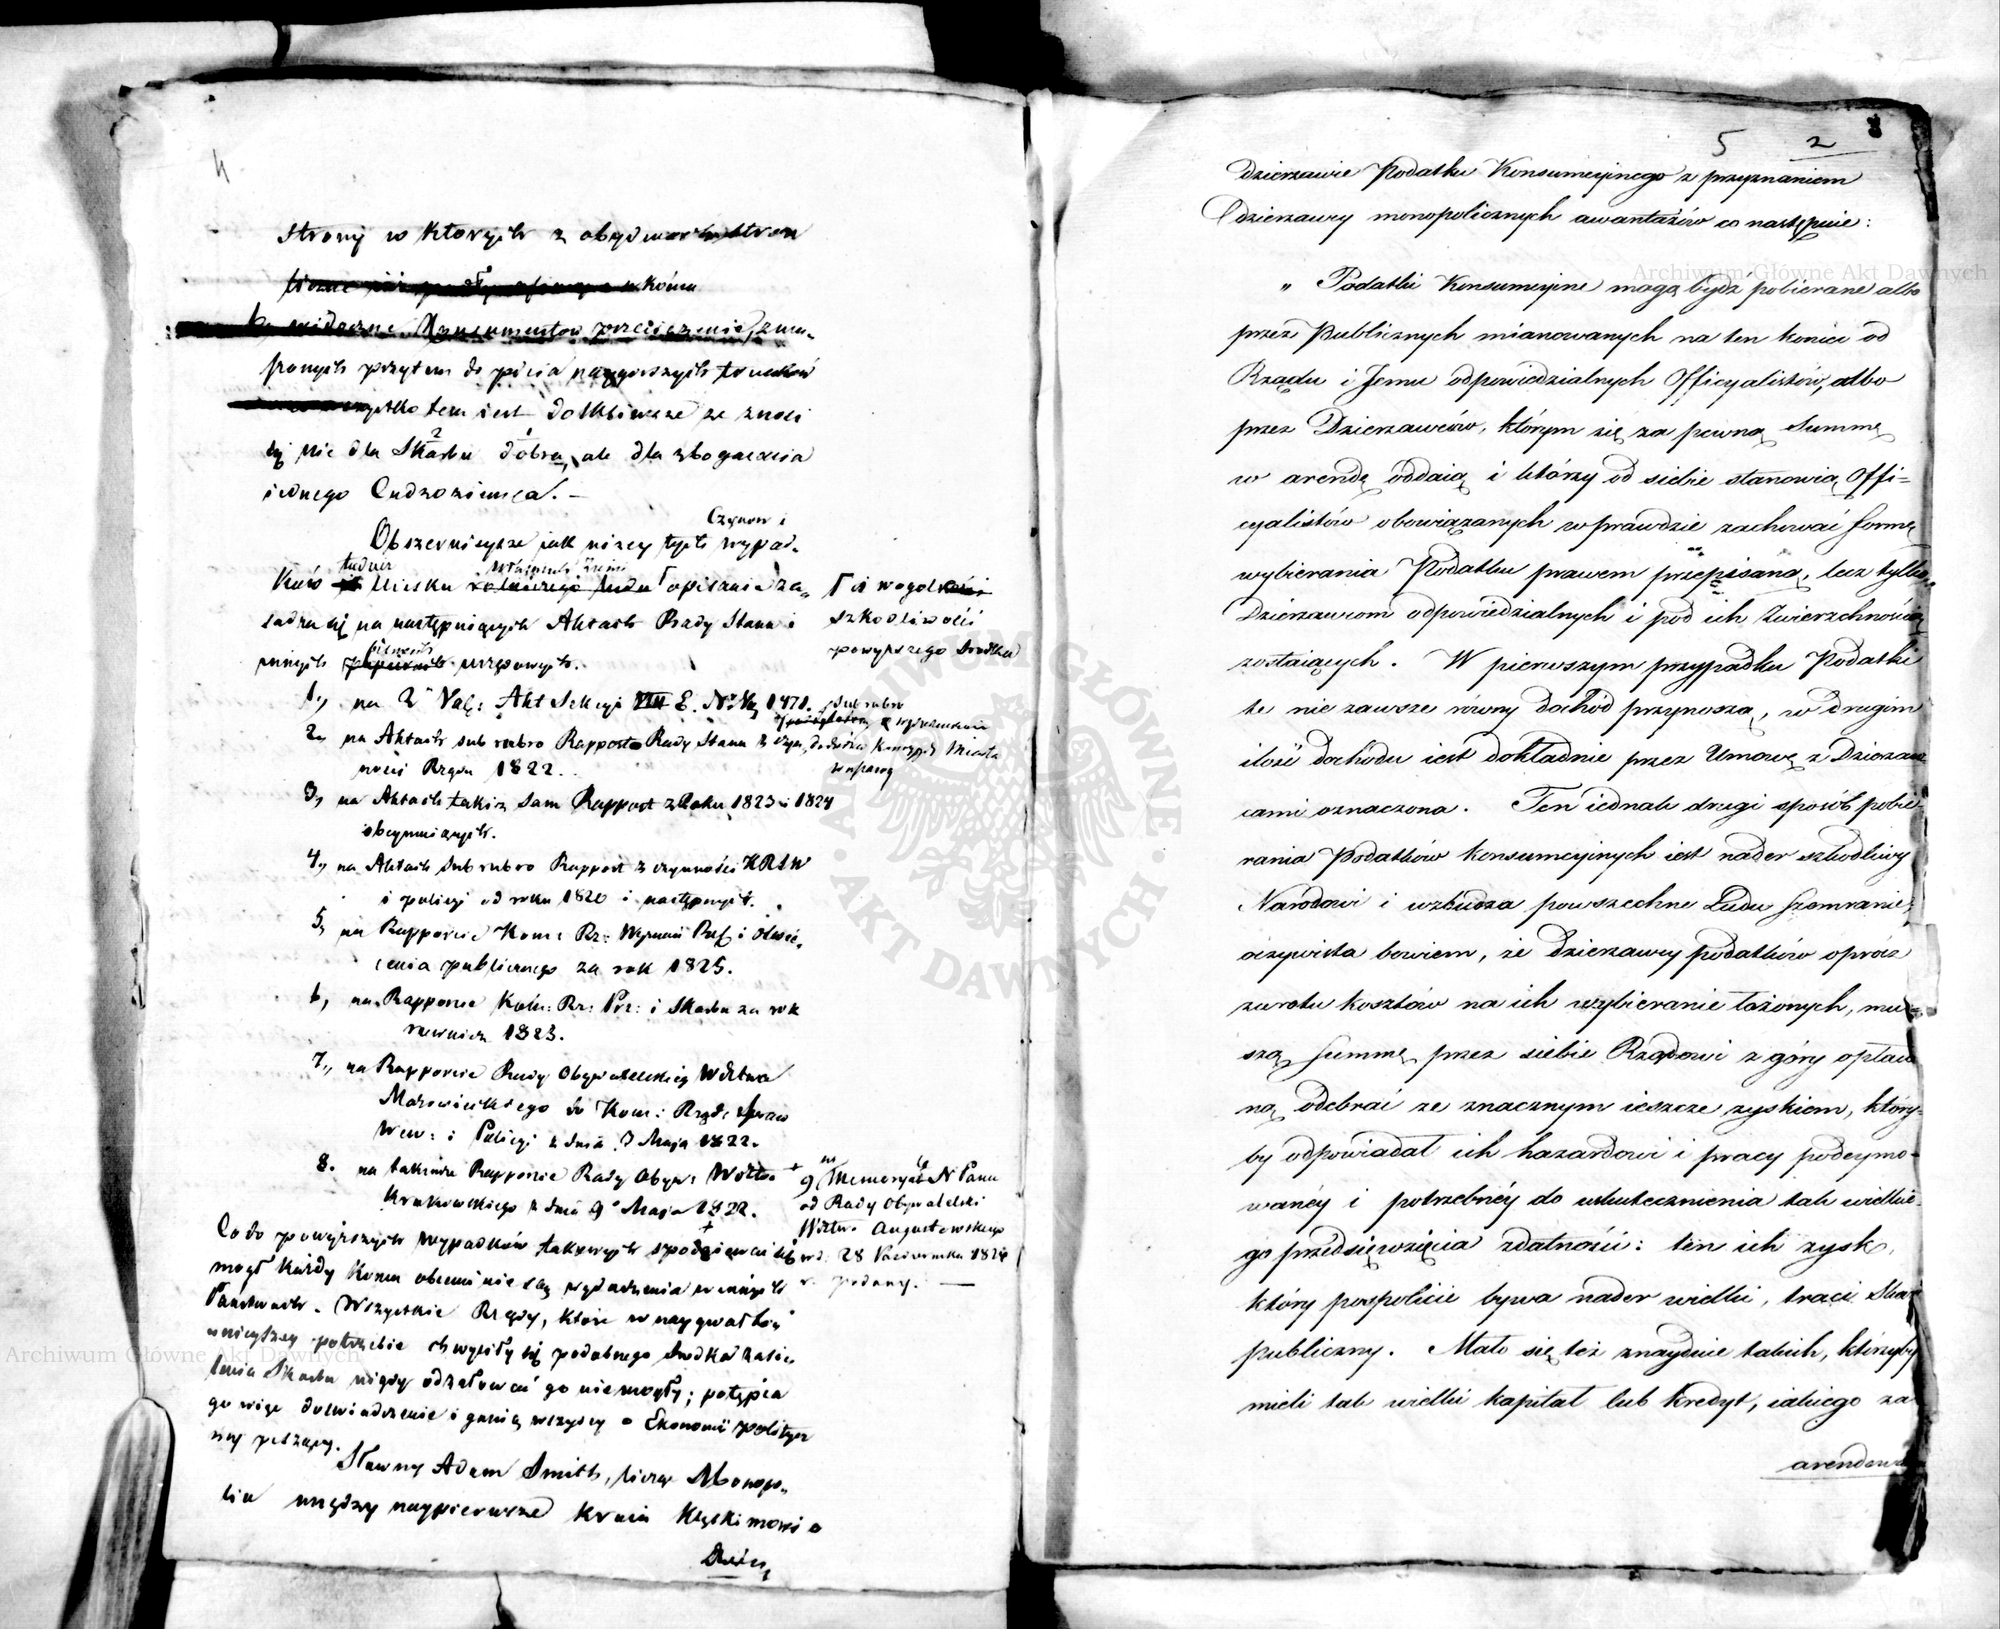 4
strony w których z obydwoch stron
końcu
widoczne Konsumentów przeciążenie, zmu-
szonych przytem do picia naygorszych trunków
wszystko tem iest dotkliwsze że znosi
się nie dla Skarbu dobra, ale dla zbogacenia
iednego Cudzoziemca. —
Czynow i
Obszernieysze jak niżey tych wypad-
tudzież
ków ucisku rolniczego ludu opisanie za-
sadza się na następuiących Aktach Rady Stanu i
innych urzędowych.
i w ogolności
szkodliwości
powyższego Środka
1., na 2 Vol: Akt Sekcyi VIII E. No 1471. sub rubro
2., na Aktach sub rubro Rapporta Rady Stanu z czyn-
ności Rządu 1822.
3., na Aktach takiż sam Rapport z Roku 1823 i 1824
obeymuiących.
4., na Aktach sub rubro Rapport z czynności KRSW
i policyi od roku 1820 i następnych.
5., na Rapporcie Kom: Rz: Wyznań Rel. i Oświe-
cenia publicznego za rok 1825.
6., na Rapporcie Kom: Rz: Prz: i Skarbu za rok
rownież 1823.
7., na Rapporcie Rady Obywatelskiey Wdztwa
Mazowieckiego do Kom: Rząd: Spraw
Wew: i Policyi z dnia 7 Maja 1822.
8. na takimże Rapporcie Rady Obyw: Wdztwa
Krakowskiego z dnia 9 Maja 1822.
9, Memoryale N Panu
od Rady Obywatelski
Wdztwa Augustowskiego
w d. 28 Października 1824
podany. —
Co do powyższych wypadków takowych spodziewać się
mogł każdy komu obcemi nie są wydarzenia w innych
Państwach. Wszystkie Rządy, które w naygwałtow-
nieyszey potrzebie chwyciły się podobnego środka zasi-
lenia Skarbu nigdy odżałować go nie mogły; potępia
go więc doświadczenie i ganią wszyscy o Ekonomii polityez
ney piszący.
Sławny Adam Smith, licząc Monopo-
lia między naypierwsze kraiu klęski mowi o
Dzier
5 2
Dzierżawie Podatku Konsumcyinego z przyznaniem
Dzierżawcy monopolicznych awantażów co następuie:
„ Podatki Konsumcyine mogą bydź pobierane albo
przez Publicznych mianowanych na ten koniec od
Rządu i Jemu odpowiedzialnych Officyalistów, albo
przez Dzierżawców, którym się za pewną Summę
w arendę oddaią i którzy od siebie stanowią Offi=
cyalistów obowiązanych wprawdzie zachować formę
wybierania Podatku prawem przepisaną, lecz tylko
Dzierżawcom odpowiedzialnych i pod ich Zwierzchnością
zostaiących. W pierwszym przypadku Podatki
te nie zawsze równy dochód przynoszą, w drugim
ilość dochodu iest dokładnie przez Umowę z Dzierżaw
cami oznaczona. Ten iednak drugi sposób pobie-
rania Podatków konsumcyinych iest nader szkodliwy
Narodowi i wzbudza powszechne Ludu szemranie;
oczywista bowiem, że Dzierżawcy podatków oprócz
zwrotu kosztów na ich wybieranie łożonych, mu=
szą Summę przez siebie Rządowi z góry opłaco
ną odebrać ze znacznym ieszcze zyskiem, który-
by odpowiadał ich hazardowi i pracy podeymo-
wanéy i potrzebnéy do uskutecznienia tak wielkie-
go przedsięwzięcia zdatności: ten ich zysk,
który pospolicie bywa nader wielki, traci Skarb
publiczny. Mało się też znaydzie takich, którzyby
mieli tak wielki kapitał lub Kredyt, iakiego za
arendowa
Archiwum Główne Akt Dawnych
Archiwum Główne Akt Dawnych
ARCHIWUM GŁÓWNE · AKT DAWNYCH ·